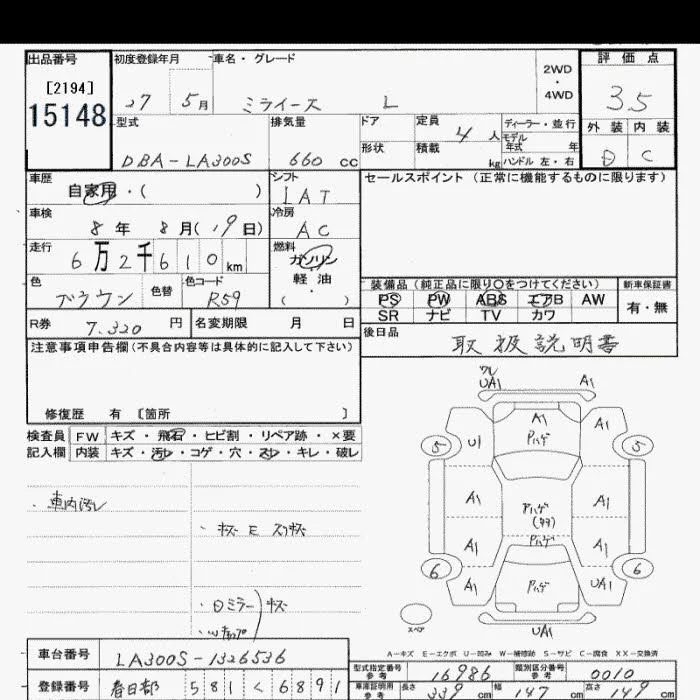 出品番号 初度登録年月 車名・グレード 2WD・4WD 評価点
[2194]
15148
27 5月 ミライース L 3.5
型式 排気量 ドア 定員 ディーラー・並行 外装 内装
4人 モデル年式 年
DBA-LA300S 660 cc 形状 積載 kg ハンドル 左・右 D C
車歴 シフト セールスポイント (正常に機能するものに限ります)
自家用・( ) IAT
車検 冷房
8年 8月(19日) AC
走行 燃料
6万2千610km ガソリン
色 色替 色コード 軽油 装備品 (純正品に限り○をつけてください) 新車保証書
ブラウン R59 ( ・ ) PS PW ABS エアB AW 有・無
SR ナビ TV カワ
R券 7,320 円 名変期限 月 日 後日品
取扱説明書
注意事項申告欄 (不具合内容等は具体的に記入して下さい)
修復歴 有 〔箇所 〕
検査員 FW キズ・飛石・ヒビ割・リペア跡・×要
記入欄 内装 キズ・汚レ・コゲ・穴・スレ・キレ・破レ
・車内汚レ
・キズ E スリキズ
・Dミラー キズ
ワレ
UA1 A1
A1
Pハゲ
5 U1 A1 5
A1 Pハゲ A1
A1 Pハゲ A1
6 6
A1 Pハゲ UA1
スペア
UA1
A-キズ E-エクボ U-凹み W-補修跡 S-サビ C-腐食 XX-交換済
車台番号 LA300S-1326536
型式指定番号 参考 16986 類別区分番号 参考 0010
登録番号 春日部 581 く 6891
車庫証明用 参考 長さ 339 cm 幅 147 cm 高さ 149 cm